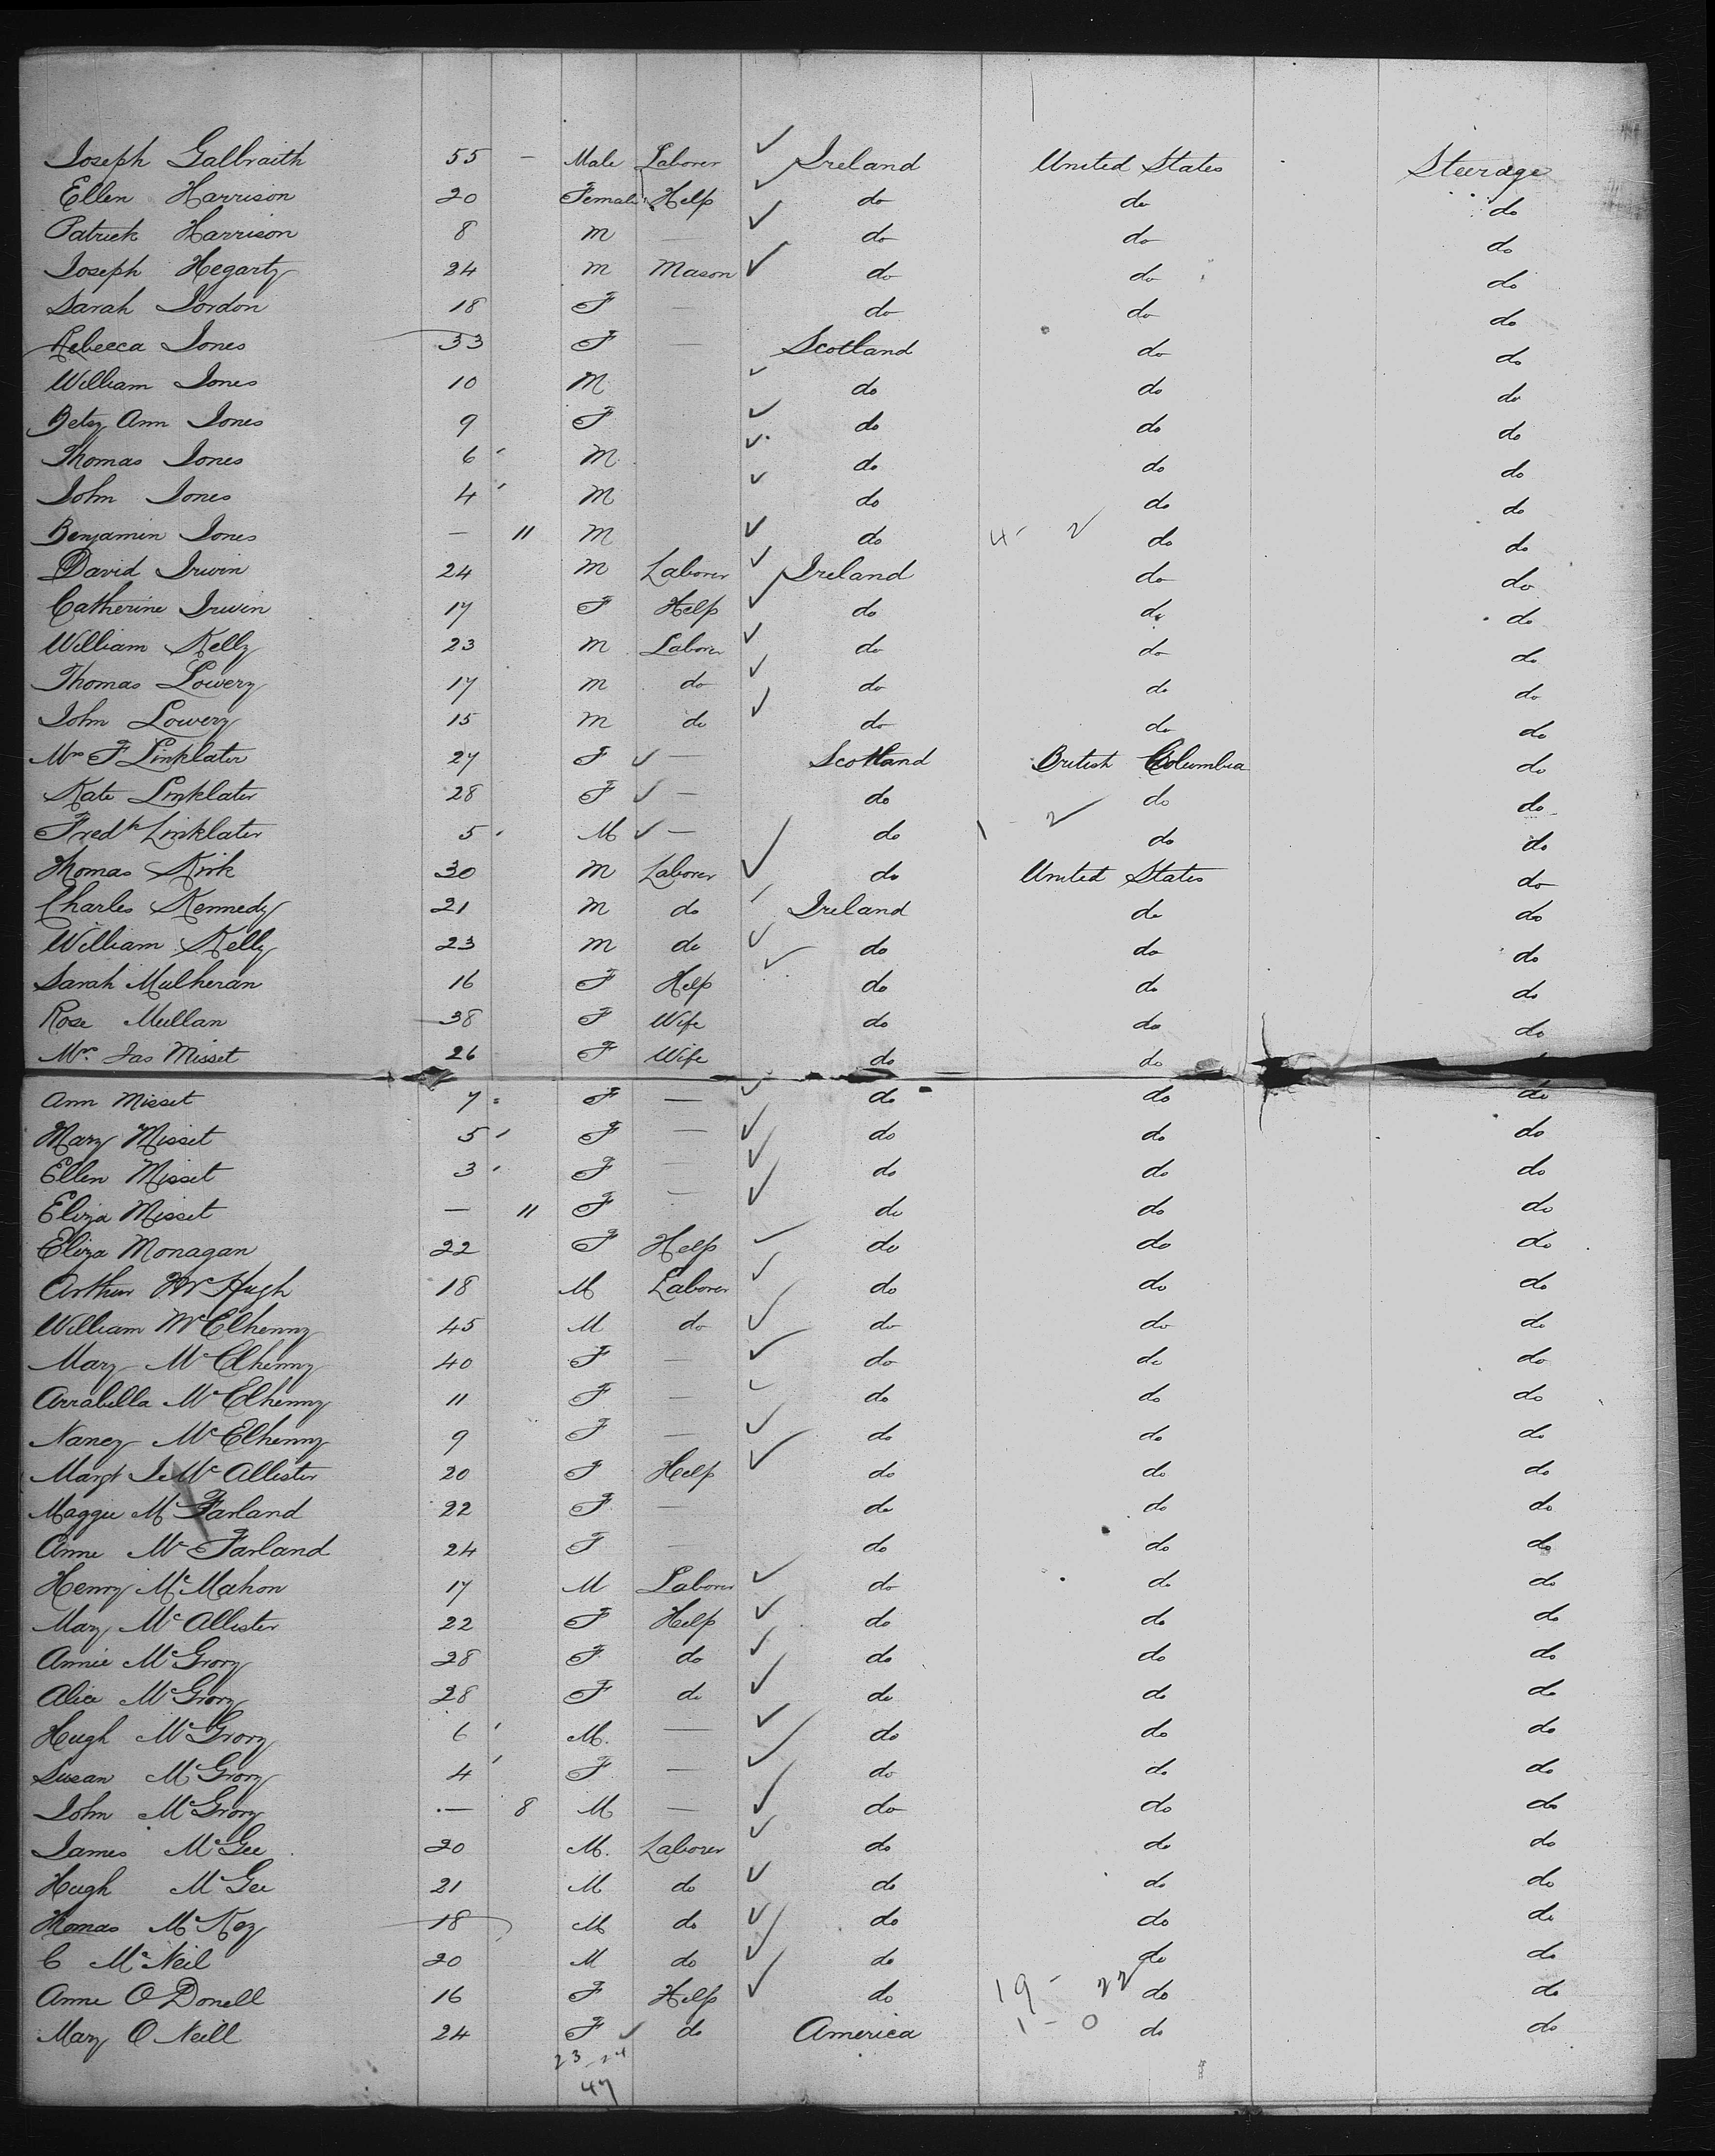 Joseph Galbraith 55 - Male Laborer ✓ Ireland United States Steerage
Ellen Harrison 20 Female Help ✓ do do do
Patrick Harrison 8 M — ✓ do do do
Joseph Hegarty 24 M Mason ✓ do do do
Sarah Jordon 18 F — do do do
Rebecca Jones 33 F — Scotland do do
William Jones 10 M ✓ do do do
Betsy Ann Jones 9 F ✓ do do do
Thomas Jones 6 M ✓ do do do
John Jones 4 M ✓ do do do
Benjamin Jones — 11 M ✓ do 4 - 2 do do
David Irwin 24 M Laborer ✓ Ireland do do
Catherine Irwin 17 F Help ✓ do do do
William Kelly 23 M Laborer ✓ do do do
Thomas Lowery 17 M do ✓ do do do
John Lowery 15 M do ✓ do do do
Mrs F Linklater 27 F ✓ — Scotland British Columbia do
Kate Linklater 28 F ✓ — do do do
Fredk Linklater 5 M ✓ — do 1 - 2 do do
Thomas Kirk 30 M Laborer ✓ do United States do
Charles Kennedy 21 M do ✓ Ireland do do
William Kelly 23 M do ✓ do do do
Sarah Mulheran 16 F Help ✓ do do do
Rose Mullan 38 F Wife do do do
Mrs. Jas Misset 26 F Wife do do
Ann Misset 7 F — ✓ do do do
Mary Misset 5 F — ✓ do do do
Ellen Misset 3 F — ✓ do do do
Eliza Misset — 11 F — ✓ do do do
Eliza Monagan 22 F Help ✓ do do do
Arthur McHugh 18 M Laborer ✓ do do do
William McElhenny 45 M do ✓ do do do
Mary McElhenny 40 F — ✓ do do do
Arrabella McElhenny 11 F — ✓ do do do
Nancy McElhenny 9 F — ✓ do do do
Margt J McAllister 20 F Help ✓ do do do
Maggie McFarland 22 F — do do do
Anne McFarland 24 F — do do do
Henry McMahon 17 M Laborer ✓ do do do
Mary McAllister 22 F Help ✓ do do do
Annie McGrory 28 F do ✓ do do do
Alice McGrory 28 F do ✓ do do do
Hugh McGrory 6 M. — ✓ do do do
Susan McGrory 4 F — ✓ do do do
John McGrory — 8 M — ✓ do do do
James McGee 20 M. Laborer ✓ do do do
Hugh McGee 21 M do ✓ do do do
Thomas McKey 18 M do ✓ do do do
C McNeil 20 M do ✓ do do do
Anne O Donell 16 F Help ✓ do 19 - 22 do do
Mary O Neill 24 F ✓ do America 1 - 0 do do
23 - 24
47